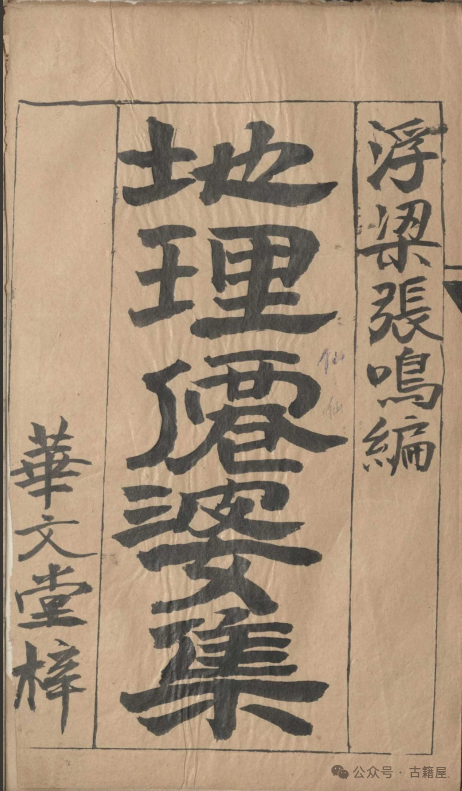 浮梁張鳴編
地理僊婆集
仙
仙
華文堂梓
公众号·古籍屋